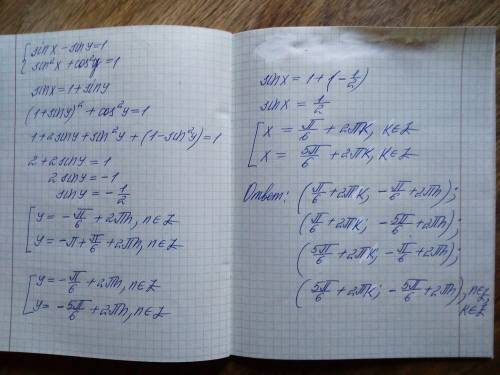 { sinx - siny = 1
sin²x + cos²y = 1
sinx = 1 + siny
(1 + siny)² + cos²y = 1
1 + 2siny + sin²y + (1 - sin²y) = 1
2 + 2siny = 1
2siny = -1
siny = -1/2
[ y = -π/6 + 2πn, n∈Z
y = -π + π/6 + 2πn, n∈Z
[ y = -π/6 + 2πn, n∈Z
y = -5π/6 + 2πn, n∈Z
sinx = 1 + (-1/2)
sinx = 1/2
[ x = π/6 + 2πk, k∈Z
x = 5π/6 + 2πk, k∈Z
Ответ: (π/6 + 2πk; -π/6 + 2πn);
(π/6 + 2πk; -5π/6 + 2πn);
(5π/6 + 2πk; -π/6 + 2πn);
(5π/6 + 2πk; -5π/6 + 2πn), n∈Z,
k∈Z